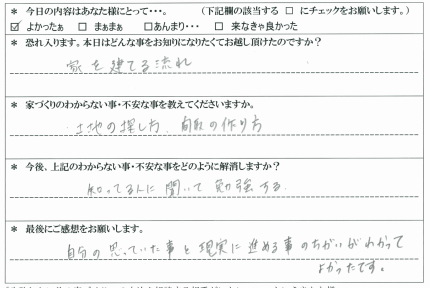 * 今日の内容はあなた様にとって・・・。 (下記欄の該当する □ にチェックをお願いします。)
☑ よかったぁ □ まぁまぁ □あんまり・・・ □ 来なきゃ良かった
* 恐れ入ります。本日はどんな事をお知りになりたくてお越し頂けたのですか?
家を建てる流れ
* 家づくりのわからない事・不安な事を教えてくださいますか。
・土地の探し方、 の作り方
* 今後、上記のわからない事・不安な事をどのように解消しますか?
知ってる人に聞いて勉強する。
* 最後にご感想をお願いします。
自分の思っていた事と現実に進める事のちがいがわかって
よかったです。